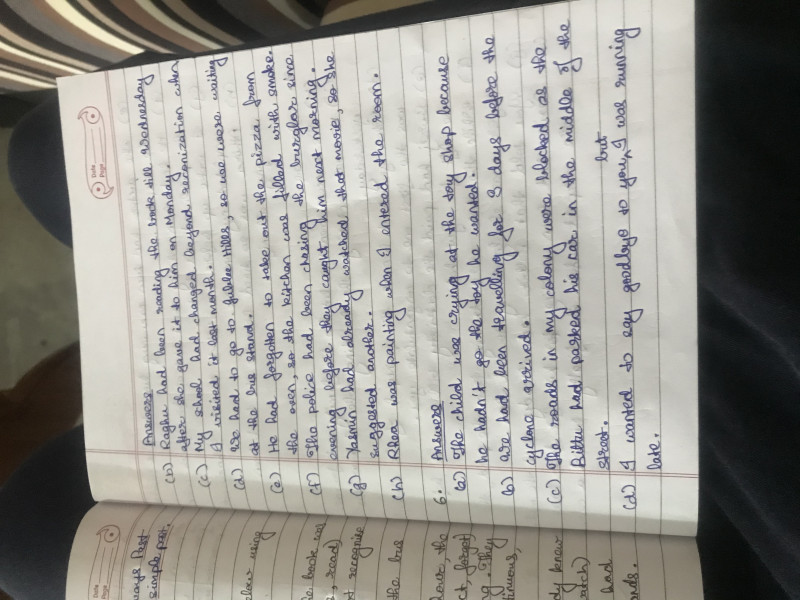 Date
Page
ways Past
simple past.
using
he book was
, read)
t recognise
the bus
the
ct, forget)
ng. They
tinuous,
dy knew
atch)
had
Date
Page
Answers
(b) Raghu had been reading the book till wednesday
after she gave it to him on Monday.
(c) My school had changed beyond reconization when
I visited it last month.
(d) We had to go to Jubilee Hills, so we were waiting
at the bus stand.
(e) He had forgotten to take out the pizza from
the oven, so the kitchen was filled with smoke.
(f) The police had been chasing the burglar since
evening before they caught him next morning.
(g) Yasmin had already watched that movie, so she
suggested another.
(h) Rhea was painting when I entered the room.
6. Answers
(a) The child was crying at the toy shop because
he hadn't go the toy he wanted.
(b) are had been travelling for 3 days before the
cyclone arrived.
(c) The roads in my colony were blocked as the
Bittu had parked his car in the middle of the
street.
(d) I wanted to say goodbye to you, but I was running
late.